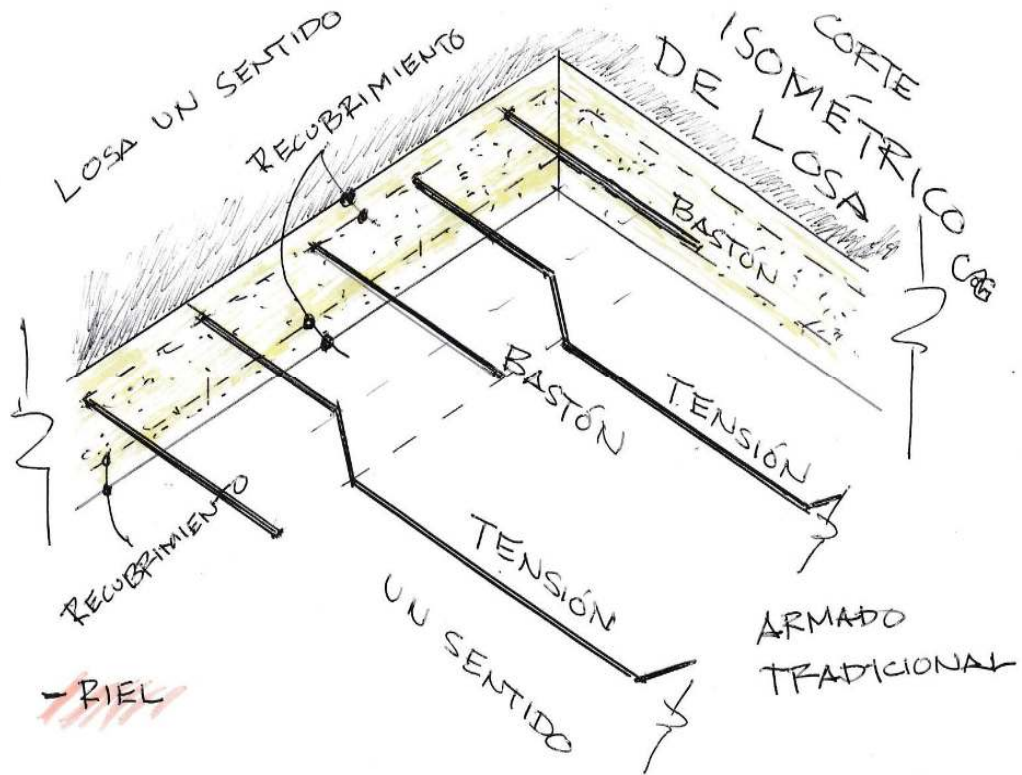 LOSA UN SENTIDO
RECUBRIMIENTO
CORTE
ISOMÉTRICO
DE LOSA
BASTÓN
BASTÓN
TENSIÓN
RECUBRIMIENTO
TENSIÓN
UN SENTIDO
ARMADO
TRADICIONAL
- RIEL